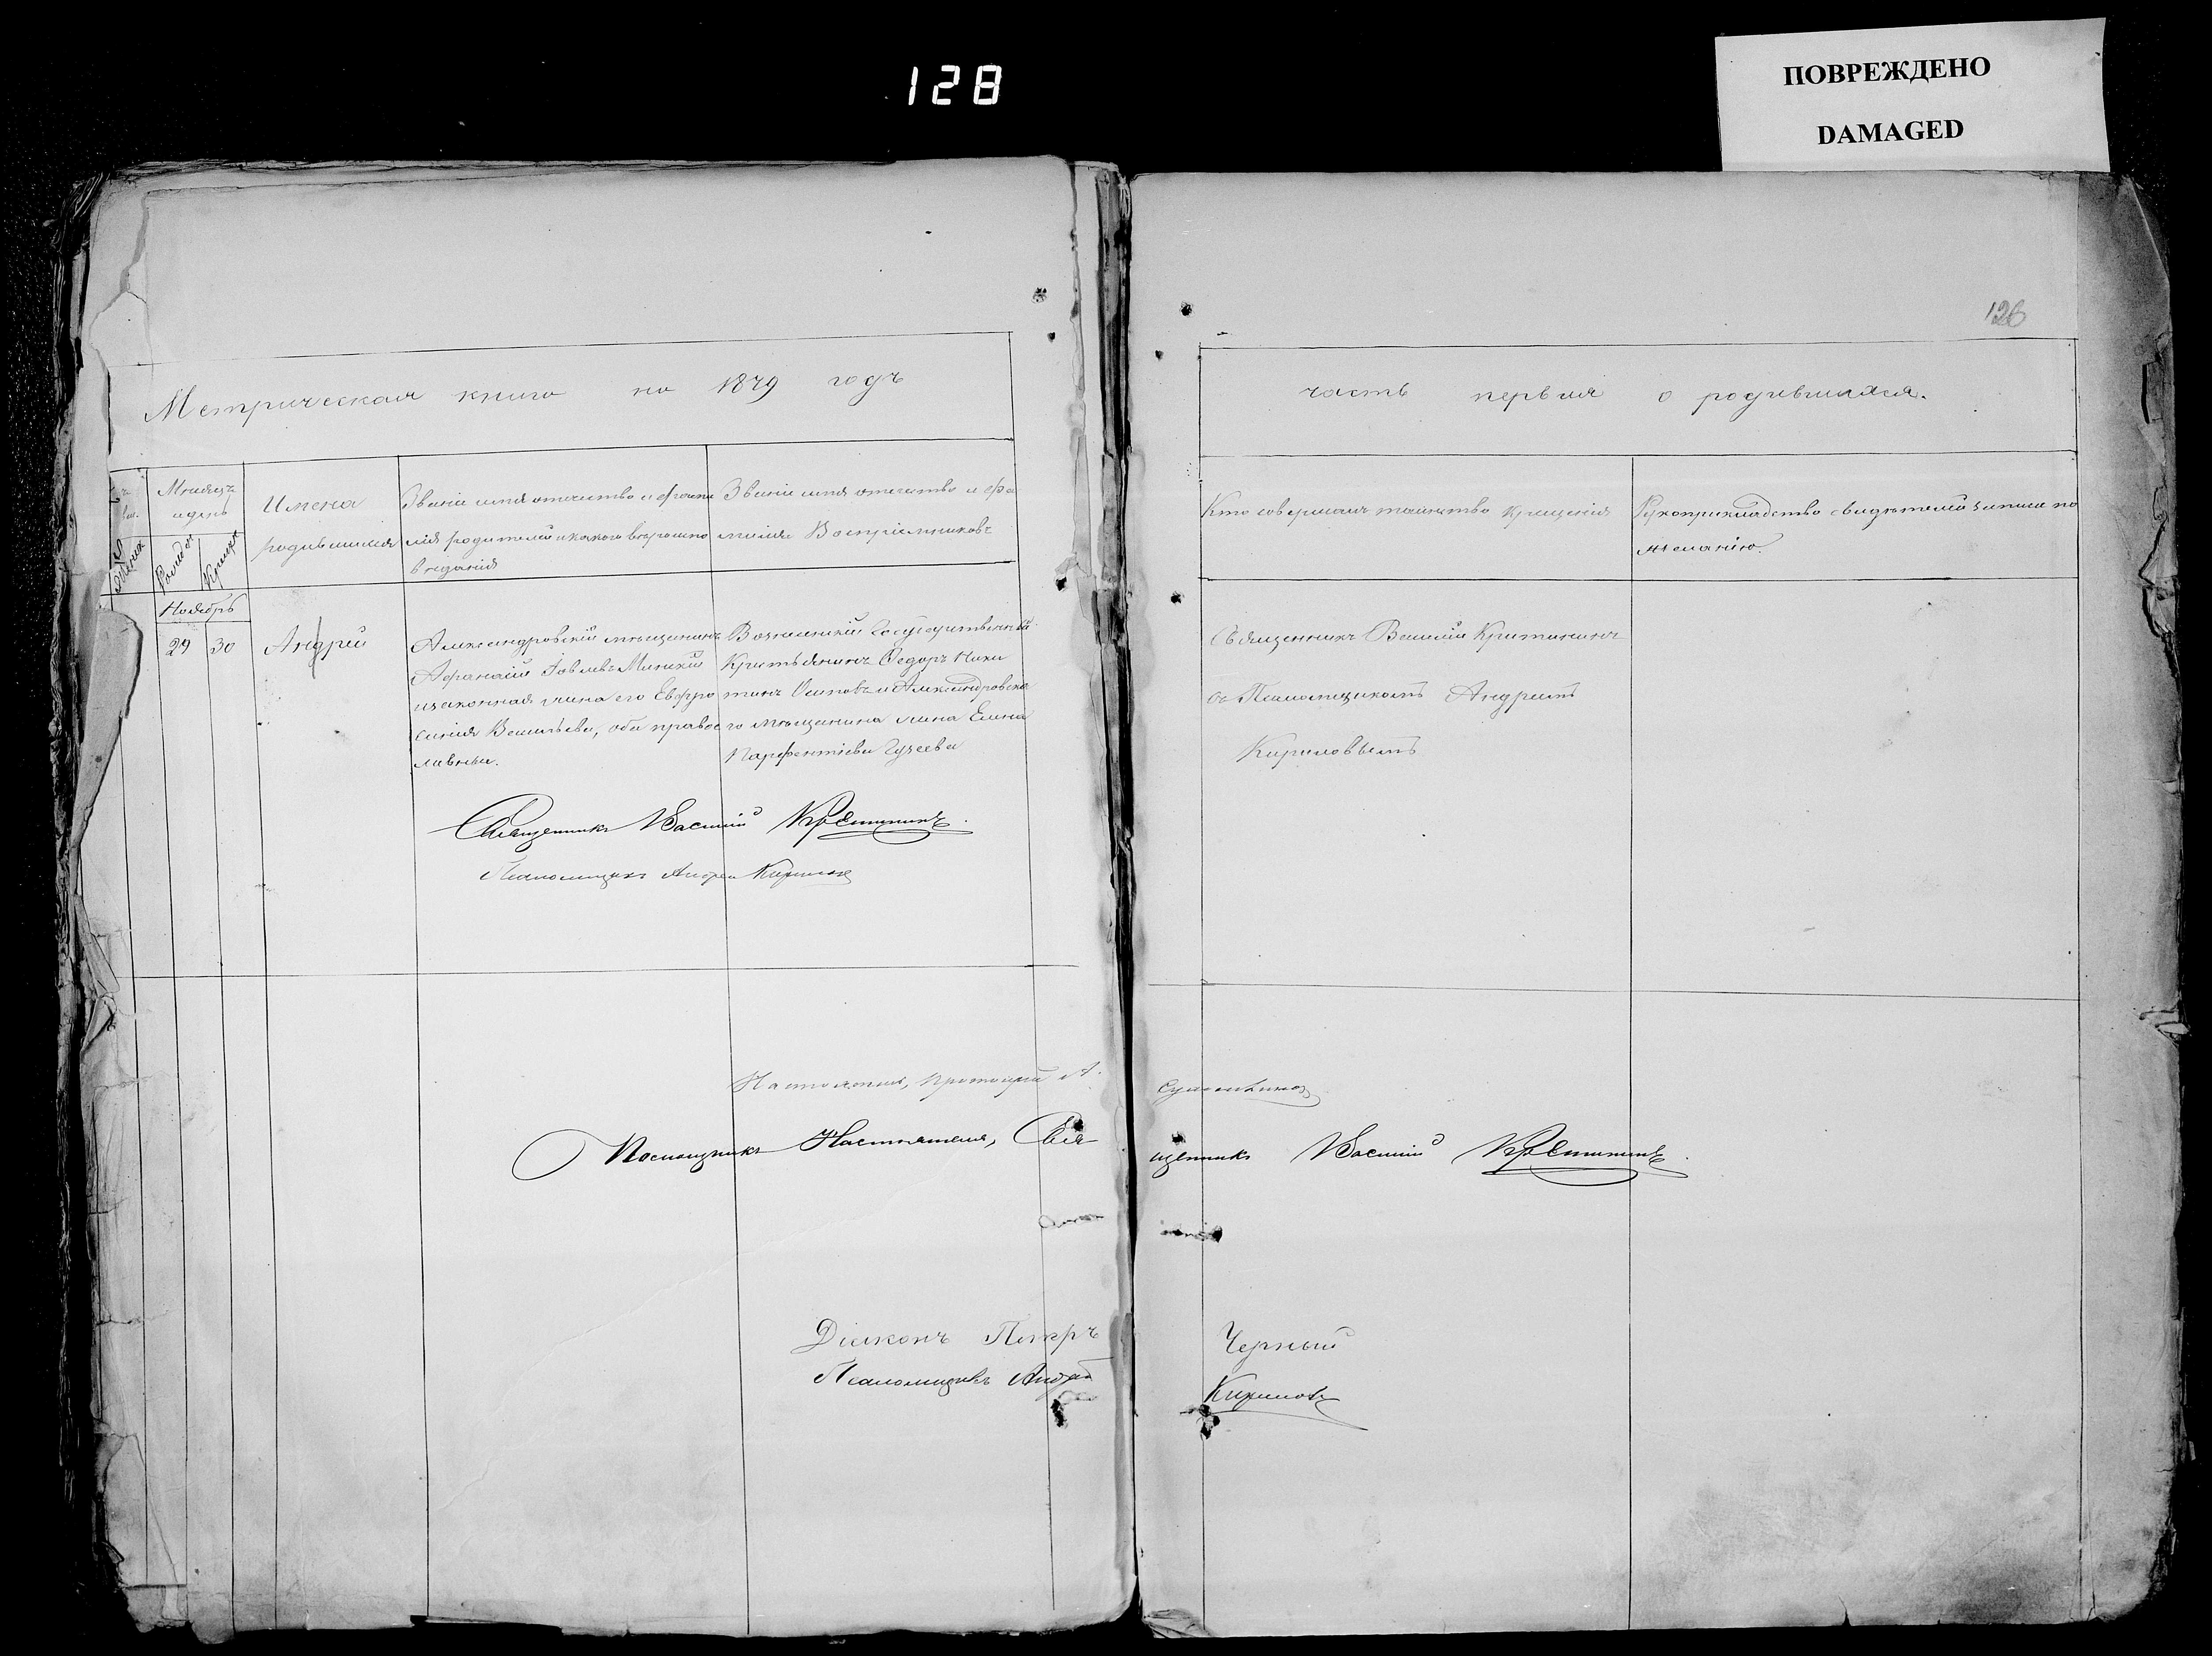 128
ПОВРЕЖДЕНО
DAMAGED
126
Метрическая книга на 1879 годъ
часть первая о родившихся.
Мѣсяцъ
и день
Рожден
Крещен
Имена
родившихся
Званіе имя отчество и фами
лія родителей и какого вѣроиспо
вѣданія
Званіе имя отчество и фа
милія Воспріемниковъ
Кто совершалъ таинство крещенія
Рукоприкладство свидѣтелей записи по
желанію.
Ноябрь
29 30 Андрей
Александровскій мѣщанинъ
Афанасій Іовлевъ
и законная жена его Евфро
синія Васильева, оба право
славные.
Государственный
Крестьянинъ Федоръ Ники
тинъ Осиповъ и Александровска
го мѣщанина жена Елена
Парфентіева
Священникъ Василій Крѣтининъ
съ Псаломщикомъ Андреемъ
Кириловымъ
Священникъ Василій Крѣтининъ.
Псаломщикъ Андрей Кириловъ
Настоятель, протоіерей А.
Помощникъ Настоятеля, Свя-
щенникъ Василій Крѣтининъ.
Діаконъ Петръ Черный
Псаломщикъ Андрей Кириловъ